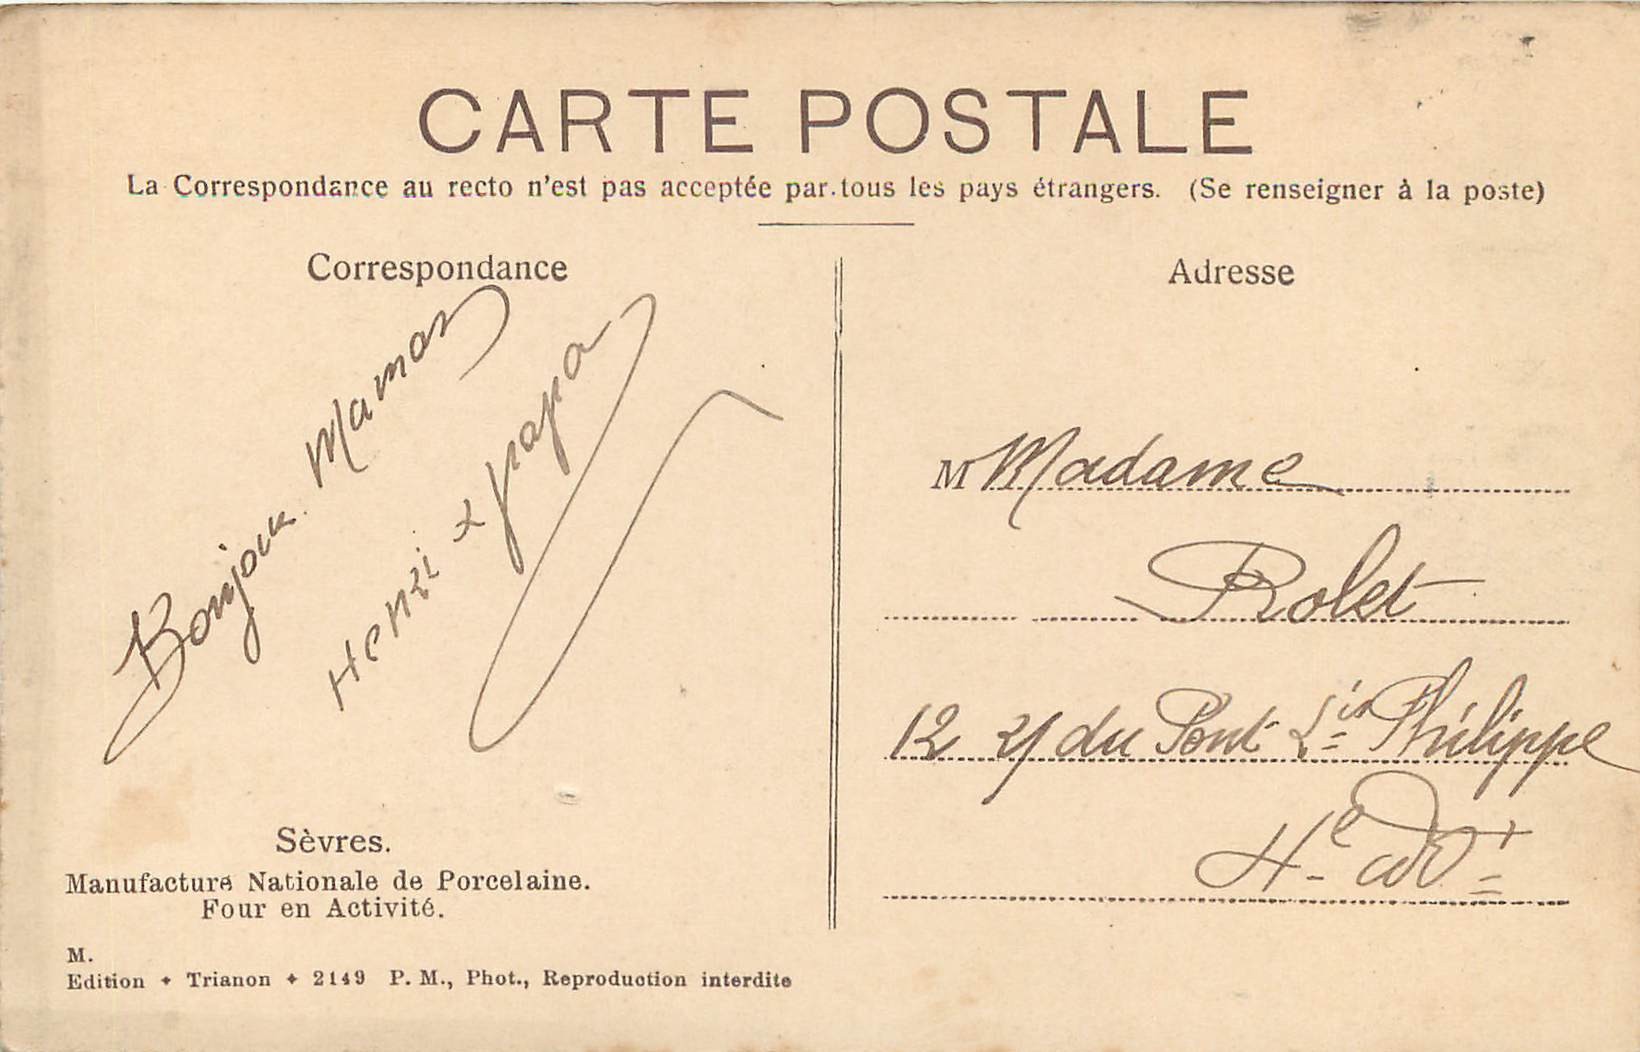 CARTE POSTALE
La Correspondance au recto n'est pas acceptée par tous les pays étrangers. (Se renseigner à la poste)
Correspondance
Bonjour Maman
Henri & papa
Sèvres.
Manufacture Nationale de Porcelaine.
Four en Activité.
M.
Edition ✦ Trianon ✦ 2149 P. M., Phot., Reproduction interdite
Adresse
M Madame
Rolet
12 du Pont Philippe